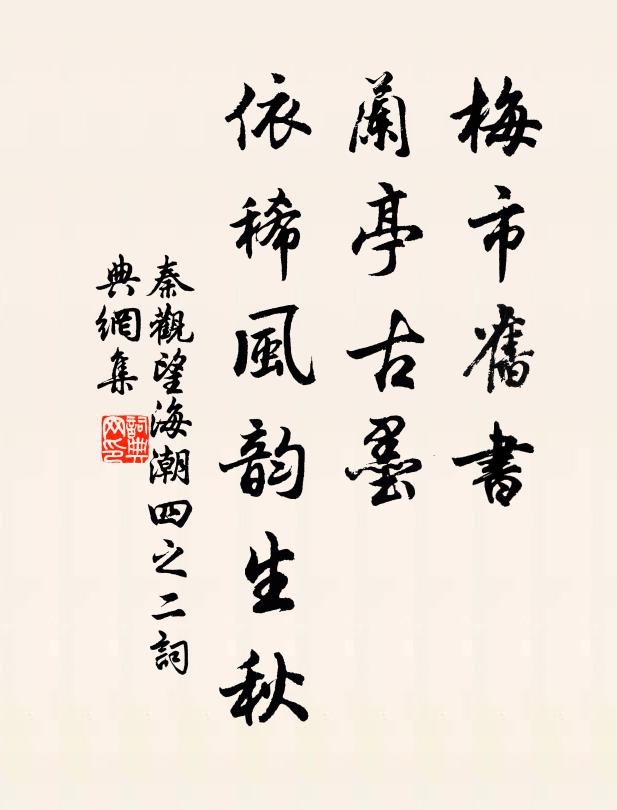 梅市舊書
蘭亭古墨
依稀風韵生秋
秦觀望海潮四之二詞
典網集
詞典
网印